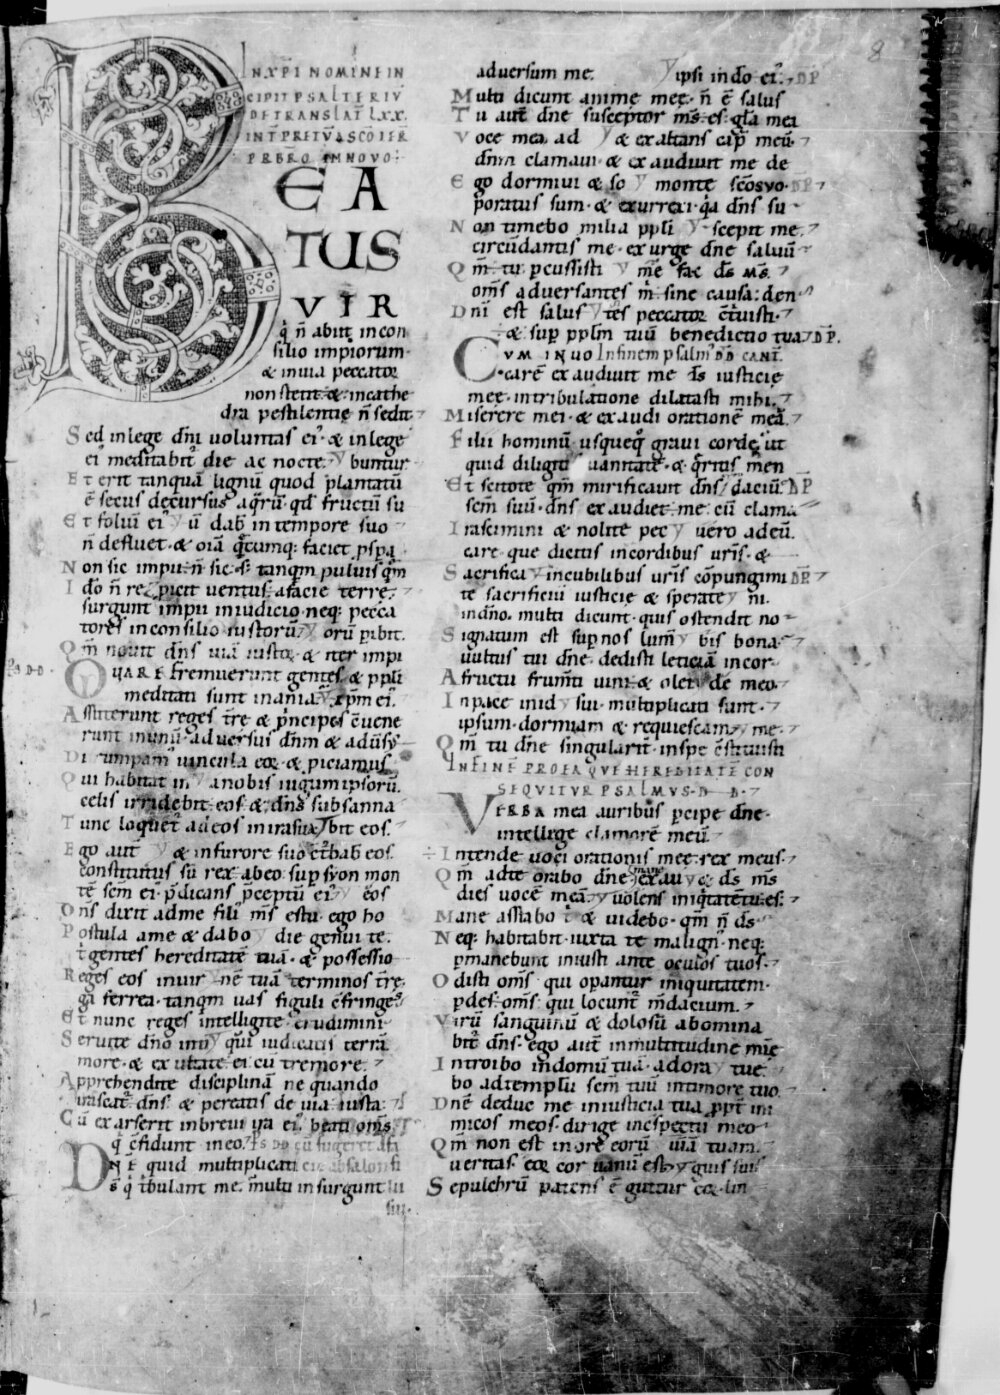 8
IN XPI NOMINE IN
CIPIT PSALTERIŪ
DE TRANSLAT̄ LXX.
INT̄PRETŪ A SC̄O IER̄
PRB̄RO IN NOVO
BEA
TUS
VIR
q̄ n̄ abiit in con
silio impiorum
& inuia peccator
non stetit & incathe
dra pestilentie n̄ sedit
Sed inlege dn̄i uoluntas ei' & inlege
ei' meditabit̄ die ac nocte buntur
Et erit tanquā lignū quod plantatū
ē secus decursus aqrū qd fructū su
Et foliū ei' ū dab̄ in tempore suo
n̄ defluet & oīa q̄cumq: faciet psp̄a
Non sic impii n̄ sic s; tanqm̄ puluis qm̄
Ido n̄ re picit uentus afacie terre
surgunt impii iniudicio neq: pecca
tores in consilio iustorū orū pibit
Qm̄ nouit dn̄s uiā iustoꝝ & iter impi
Ps D D
QUARE fremuerunt gentes & ppli
meditati sunt inania xp̄m ei'
Astiterunt reges t̄re & p̄ncipes c̄uene
runt inunū aduersus dn̄m & adūsy
Dirumpam' uincula eoꝝ & piciamus
Qui habitat in anobis iugum ipsorū
celis irridebit eos & dn̄s subsanna
Tunc loquet̄ ad eos in ira sua bit eos
Ego aut̄ & infurore suo c̄t̄bab̄ eos
constitutus sū rex abeo sup syon mon
tē sc̄m ei' p̄dicans p̄ceptū ei' eos
Dn̄s dixit adme fili' m̄s estu ego ho
Postula ame & dabo die genui te
t̄ gentes hereditatē tuā & possessio
Reges eos inuir nē tuā terminos t̄re
ga ferrea tanqm̄ uas figuli c̄fringes
Et nunc reges intelligite erudimini
Seruite dn̄o inti qui iudicatis terrā
more & exultate ei cū tremore
Apprehendite disciplinā ne quando
irascat̄ dn̄s & pereatis de uia iusta
Cū exarserit inbreui ira ei' beati om̄s
q' c̄fidunt in eo Ps DD cū fugeret afa
DN̄E quid multiplicati cie absalon fi
s̄ q' t̄bulant me multi insurgunt lii
sui
aduersum me ipsi in dō ei' DP
Multi dicunt anime mee n̄ ē salus
Tu aut̄ dn̄e susceptor m̄s es gl̄a mea
Voce mea ad & exaltans cap̄ meū
dn̄m clamaui & exaudiuit me de
Ego dormiui & so monte sc̄o suo DP
poratus sum & exurrexi q̄a dn̄s su
Non timebo milia ppli scepit me
circūdantis me exurge dn̄e saluū
Qm̄ tu pcussisti me fac d̄s m̄s
om̄s aduersantes m̄ sine causa den
Dn̄i est salus tes peccatoꝝ c̄t̄uisti
& sup pplm̄ tuū benedictio tua DP
CUM INUO In finem psalm' DD CANT̄
carē exaudiuit me d̄s iusticie
mee intribulatione dilatasti mihi
Miserere mei & exaudi orationē meā
Filii hominū usqueq' graui corde ut
quid diligitis uanitatē & q̄ritis men
Et scitote qm̄ mirificauit dn̄s daciū DP
sc̄m suū dn̄s exaudiet me cū clama
Irascimini & nolite pec uero adeū
care que dicitus incordibus ur̄is &
Sacrifica incubilibus ur̄is cōpungimi DP
te sacrificiū iusticie & sperate ni
indn̄o multi dicunt quis ostendit no
Signatum est sup nos lum̄ bis bona
uultus tui dn̄e dedisti leticiā incor
A fructu frum̄ti uini & olei de meo
In pace inid sui multiplicati sunt
ipsum dormiam & requiescam me
Qm̄ tu dn̄e singularit̄ inspe c̄stituisti
IN FINĒ PRO EA QUE HEREDITATĒ CON
SEQUITUR PSALMUS D D
VERBA mea auribus pcipe dn̄e
intellege clamorē meū
Intende uoci orationis mee rex meus
Qm̄ adte orabo dn̄e mane exau & d̄s m̄s
dies uocē meā uolens iniq̄tatē tu es
Mane astabo t̄ & uidebo qm̄ n̄ d̄s
Neq: habitabit iuxta te malign' neq:
pmanebunt iniusti ante oculos tuos
Odisti om̄s qui opantur iniquitatem
pdes om̄s qui locunt̄ m̄dacium
Virū sanguinū & dolosū abomina
bit̄ dn̄s ego aut̄ in multitudine mīe
Introibo indomū tuā adora tue
bo adtemplū sc̄m tuū intimore tuo
Dn̄e deduc me iniusticia tua ppt̄ ini
micos meos dirige inc̄spectu meo
Qm̄ non est in ore eorū uiā tuam
ueritas eoꝝ cor uanū est quis suis
Sepulchrū patens ē guttur eoꝝ lin